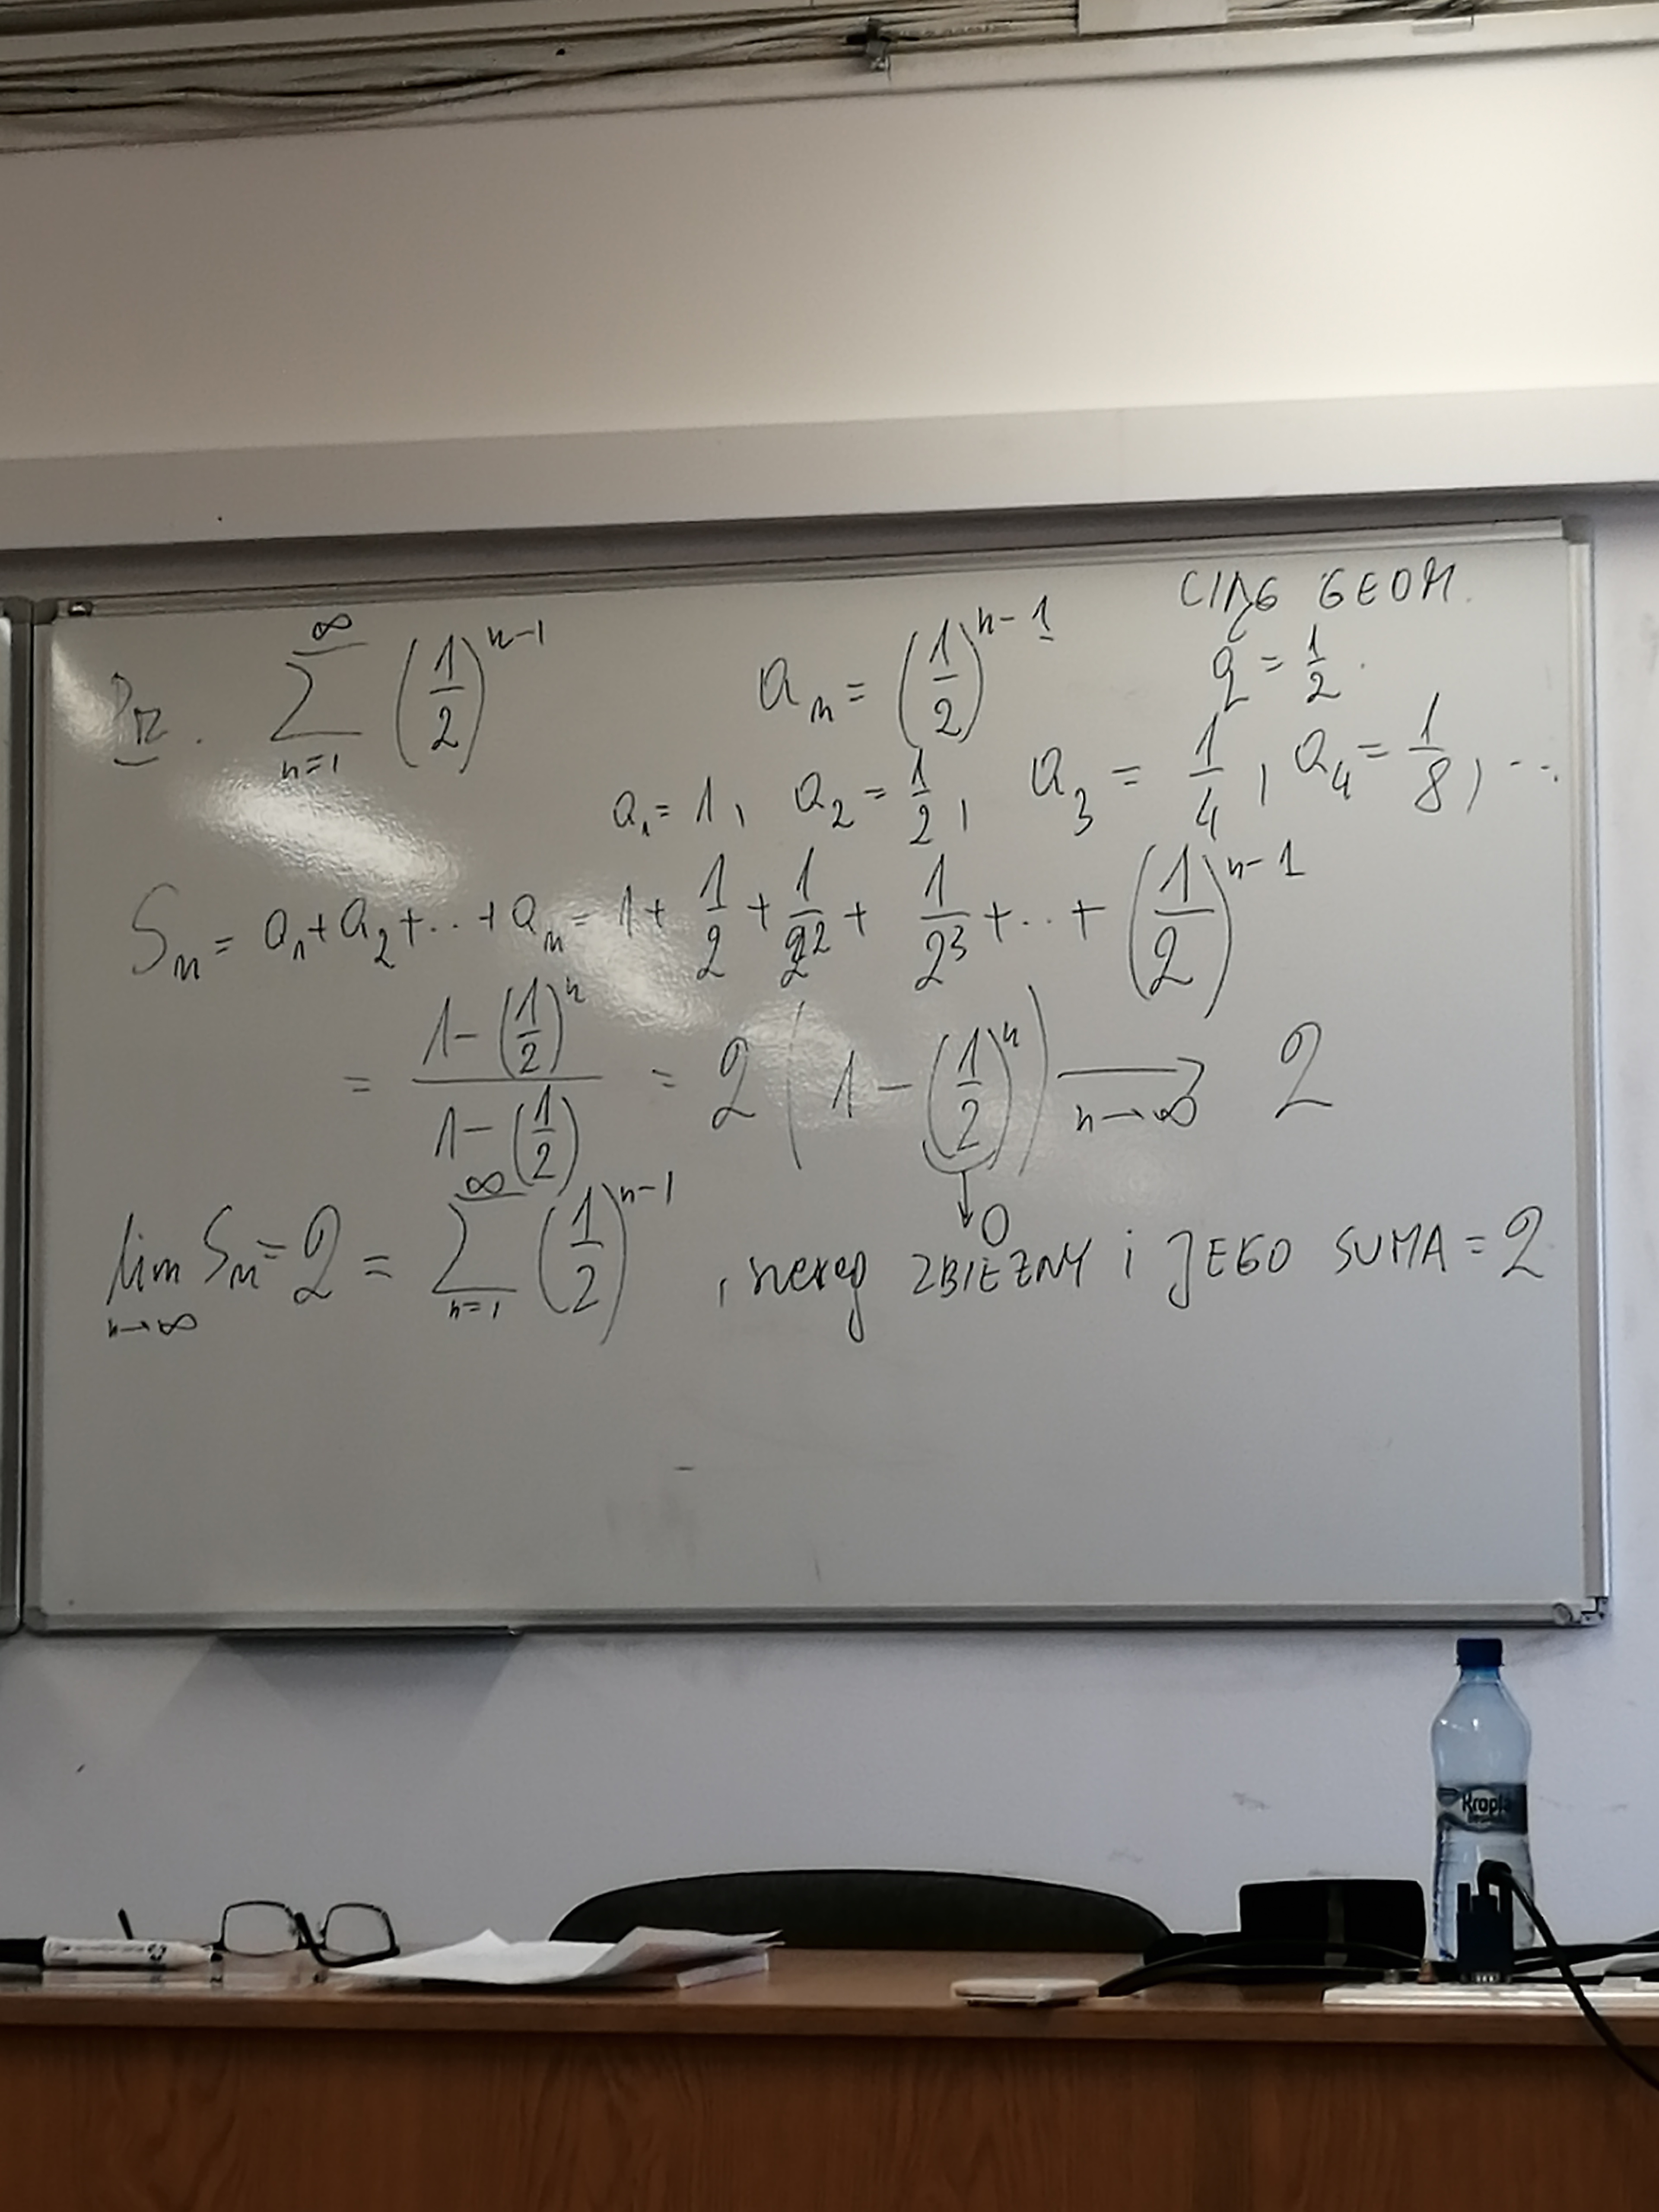 CIĄG GEOM.
Pr. ∑_{n=1}^{∞} (1/2)^{n-1} a_n = (1/2)^{n-1} q = 1/2.
a_1 = 1, a_2 = 1/2, a_3 = 1/4, a_4 = 1/8, ...
S_n = a_1 + a_2 + ... + a_n = 1 + 1/2 + 1/2^2 + 1/2^3 + ... + (1/2)^{n-1}
= (1 - (1/2)^n) / (1 - (1/2)) = 2 (1 - (1/2)^n) →_{n→∞} 2
↓ 0
lim_{n→∞} S_n = 2 = ∑_{n=1}^{∞} (1/2)^{n-1}, szereg ZBIEŻNY i JEGO SUMA = 2
Kropla